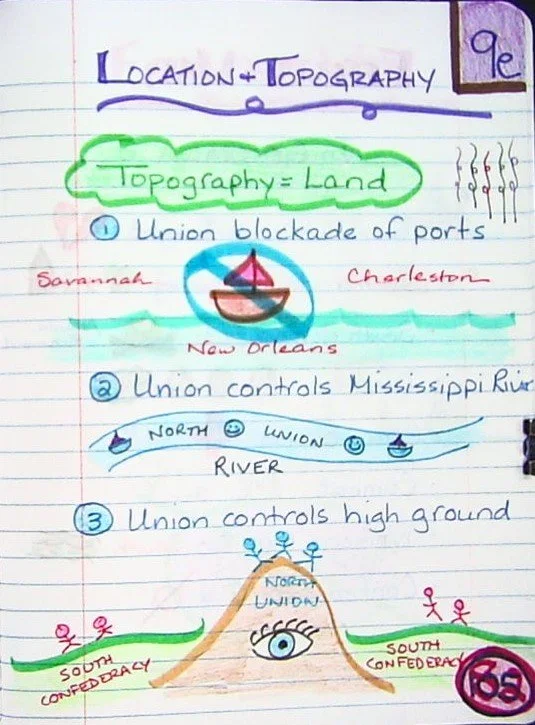 9e
LOCATION + TOPOGRAPHY
Topography = Land
1 Union blockade of ports
Savannah
Charleston
New Orleans
2 Union controls Mississippi River
NORTH UNION
RIVER
3 Union controls high ground
NORTH
UNION
SOUTH
CONFEDERACY
SOUTH
CONFEDERACY